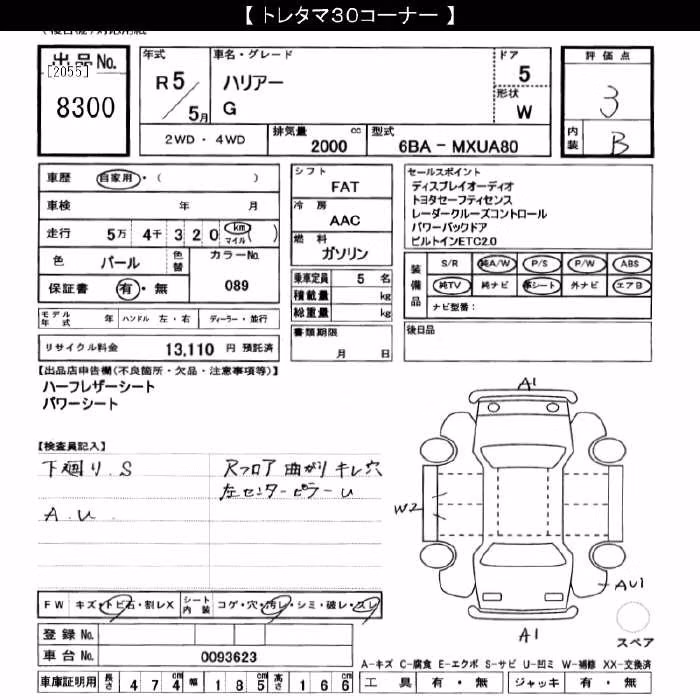 【 トレタマ30コーナー 】
出品No.
[2055]
8300
年式
R5/5月
車名・グレード
ハリアー
G
ドア
5
形状
W
2WD・4WD
排気量 2000 cc
型式 6BA - MXUA80
評価点
3
内装
B
車歴 自家用・( )
車検 年 月
走行 5万 4千 3 2 0 km マイル ( )
色 パール 色替 カラーNo. 089
保証書 有・無
シフト
FAT
冷房
AAC
燃料
ガソリン
乗車定員 5 名
積載量 kg
総重量 kg
書類期限
月 日
セールスポイント
ディスプレイオーディオ
トヨタセーフティセンス
レーダークルーズコントロール
パワーバックドア
ビルトインETC2.0
装備品
S/R 純A/W P/S P/W ABS
純TV 純ナビ 革シート 外ナビ エアB
ナビ型番：
後日品
モデル年式 年 ハンドル 左・右 ディーラー・並行
リサイクル料金 13,110 円 預託済
【出品店申告欄(不良箇所・欠品・注意事項等)】
ハーフレザーシート
パワーシート
【検査員記入】
下廻り.S
A.U.
Rフロア 曲がり キレ穴
左センターピラーU
A1
W2
AU1
A1
スペア
FW キズ・トビ石・割レX シート内装 コゲ・穴・汚レ・シミ・破レ・スレ
登録No.
車台No. 0093623
A-キズ C-腐食 E-エクボ S-サビ U-凹ミ W-補修 XX-交換済
車庫証明用 長さ 4 7 4 cm 幅 1 8 5 cm 高さ 1 6 6 cm
工具 有・無 ジャッキ 有・無